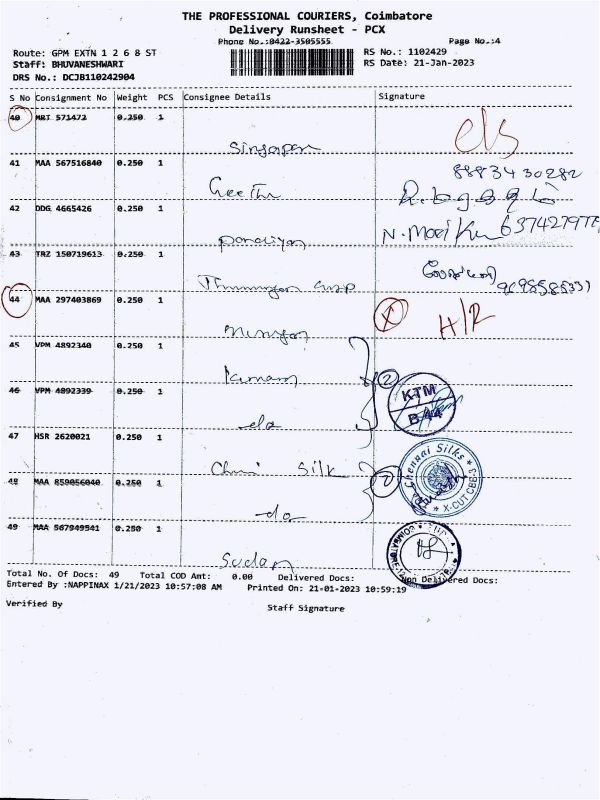 THE PROFESSIONAL COURIERS, Coimbatore
Delivery Runsheet - PCX
Phone No.:0422-3505555 Page No.:4
Route: GPM EXTN 1 2 6 8 ST RS No.: 1102429
Staff: BHUVANESHWARI RS Date: 21-Jan-2023
DRS No.: DCJB110242904
S No Consignment No Weight PCS Consignee Details Signature
40 MRT 571472 0.250 1
Singapan
41 MAA 567516840 0.250 1 8883430282
Geetha
42 DDG 4665426 0.250 1
43 TRZ 150719613 0.250 1
9698585331
44 MAA 297403869 0.250 1 H/R
45 VPM 4892340 0.250 1
2
46 VPM 4892339 0.250 1 KTM
do B 44
47 HSR 2620021 0.250 1 Chennai Silks
Silk X-CUT CBE
48 MAA 859056040 0.250 1
do
49 MAA 567949541 0.250 1
Sudan
Total No. Of Docs: 49 Total COD Amt: 0.00 Delivered Docs: Non Delivered Docs:
Entered By :NAPPINAX 1/21/2023 10:57:08 AM Printed On: 21-01-2023 10:59:19
Verified By Staff Signature